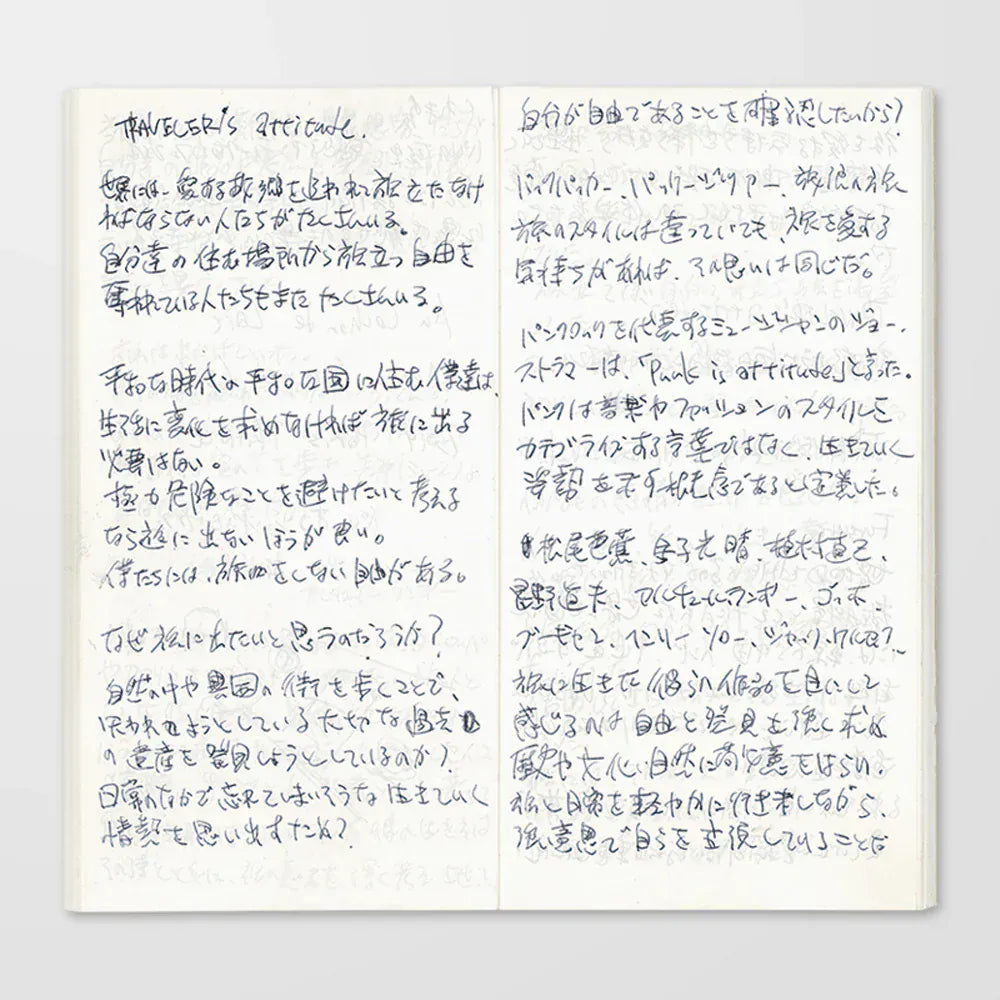 TRAVELER'S attitude.
世界には、愛する故郷を追われ旅立たなけ
ればならない人たちがたくさんいる。
自分達の住む場所から旅立つ自由を
奪われている人たちもまたたくさんいる。
平和な時代の平和な国に住む僕達は、
生活に変化を求めなければ旅に出る
必要はない。
極力危険なことを避けたいと考える
なら旅に出ないほうが良い。
僕たちには、旅をしない自由がある。
なぜ旅に出たいと思うのだろうか?
自然の中や異国の街を歩くことで、
失われようとしている大切な過去
の遺産を発見しようとしているのか?
日常のなかで忘れてしまいそうな生きていく
情熱を思い出すため?
自分が自由であることを確認したいから?
バックパッカー、パッケージツアー、放浪の旅
旅のスタイルは違っていても、旅を愛する
気持ちがあれば、その思いは同じだ。
パンクロックを代表するミュージシャンのジョー・
ストラマーは、「Punk is attitude」と言った。
パンクは音楽やファッションのスタイルを
カテゴライズする言葉ではなく、生きていく
姿勢を示す概念であると定義した。
松尾芭蕉、金子光晴、植村直己、
星野道夫、アルチュール・ランボー、ゴッホ、
ブーギャビン、ヘンリー・ソロー、ジャック・
旅に生きた彼らの作品を目にして
感じるのは自由と発見を強く求め
歴史や文化、自然に敬意をはらい、
旅と日常を軽やかに行き来しながら、
強い意思で自らを主張していることだ